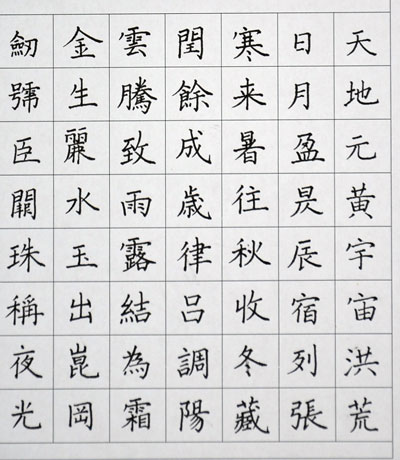 天地元黄宇宙洪荒
日月盈昃辰宿列張
寒来暑往秋收冬藏
閏餘成歳律呂調陽
雲騰致雨露結為霜
金生麗水玉出崑岡
號巨闕珠稱夜光